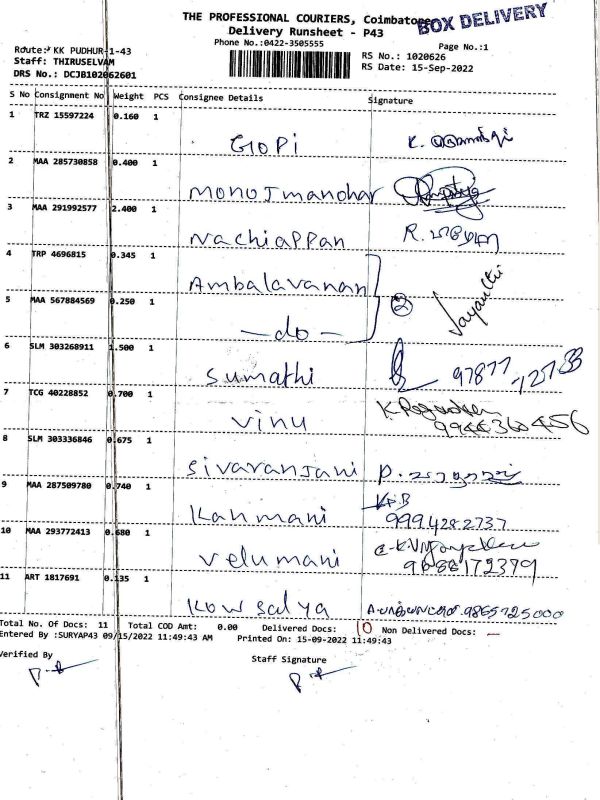 THE PROFESSIONAL COURIERS, Coimbatore
BOX DELIVERY
Delivery Runsheet - P43
Phone No.:0422-3505555
Page No.:1
Route: KK PUDHUR-1-43
RS No.: 1020626
Staff: THIRUSELVAM
RS Date: 15-Sep-2022
DRS No.: DCJB102062601
S No Consignment No Weight PCS Consignee Details Signature
1 TRZ 15597224 0.160 1
GOPi K.
2 MAA 285730858 0.400 1
monojmanohar
3 MAA 291992577 2.400 1
Nachiappan R.
4 TRP 4696815 0.345 1
Ambalavanan
5 MAA 567884569 0.250 1
2 Jayanthi
- do -
6 SLM 303268911 1.500 1
Sumathi 97877
7 TCG 40228852 0.700 1
Vinu
8 SLM 303336846 0.675 1
Sivaranjani P.
9 MAA 287509780 0.740 1
Kanmani 9994282737
10 MAA 293772413 0.680 1
Velumani
11 ART 1817691 0.135 1
Kowsalya 9865725000
Total No. Of Docs: 11 Total COD Amt: 0.00 Delivered Docs: 10 Non Delivered Docs: -
Entered By :SURYAP43 09/15/2022 11:49:43 AM Printed On: 15-09-2022 11:49:43
Verified By
Staff Signature